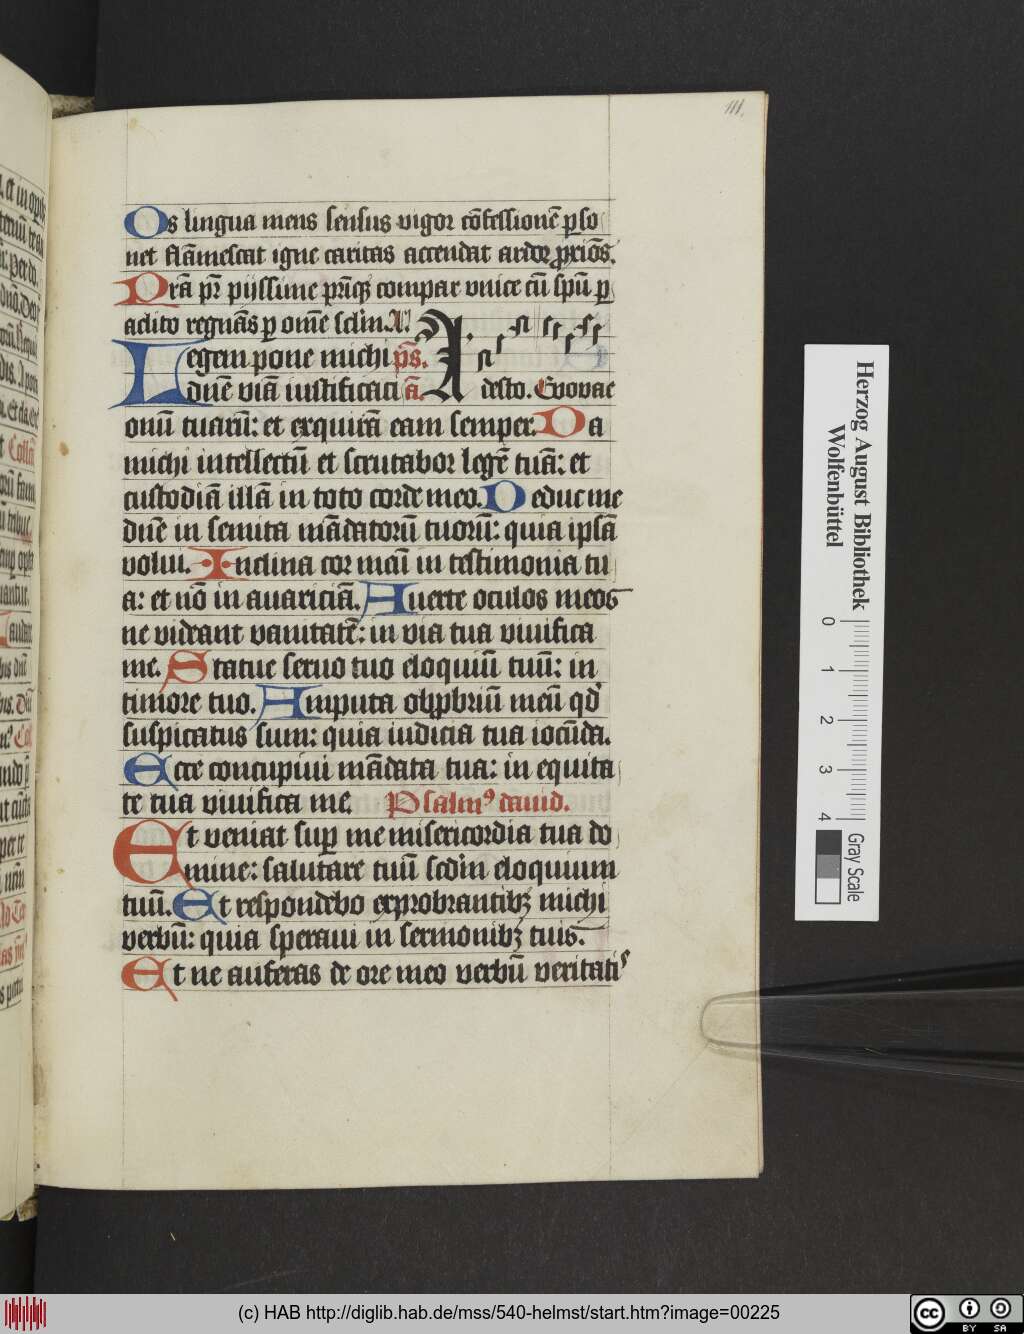 111.
Os lingua mens sensus vigor cōfessionē p̱so
net flāmescat igne caritas accendat ardor p̱xiōs.
Prā pr̄ pijssime pr̄iqȝ compar vnice cū spū p̱
aclito regnās p̱ omē sclm. A
Legem pone michi ps̄. A
dn̄e viā iustificaci a. desto. Evovae
onū tuarū: et exquirā eam semper. Da
michi intellectū et scrutabor legē tuā: et
custodiā illā in toto corde meo. Deduc me
dn̄e in semita mādatorū tuorū: quia ipsā
volui. Inclina cor meū in testimonia tu
a: et nō in auariciā. Auerte oculos meos
ne videant vanitatē: in via tua viuifica
me. Statue seruo tuo eloquiū tuū: in
timore tuo. Amputa obp̱briū meū qd̓
suspicatus sum: quia iudicia tua iocūda.
Ecce concupiui mādata tua: in equita
te tua viuifica me. Psalmꝰ dauid.
Et veniat sup̱ me misericordia tua do
mine: salutare tuū scd̄m eloquium
tuū. Et respondebo exprobrantibȝ michi
verbū: quia speraui in sermonibȝ tuis.
Et ne auferas de ore meo verbū veritatis
Herzog August Bibliothek
Wolfenbüttel
0 1 2 3 4
Gray Scale
(c) HAB http://diglib.hab.de/mss/540-helmst/start.htm?image=00225
cc BY SA